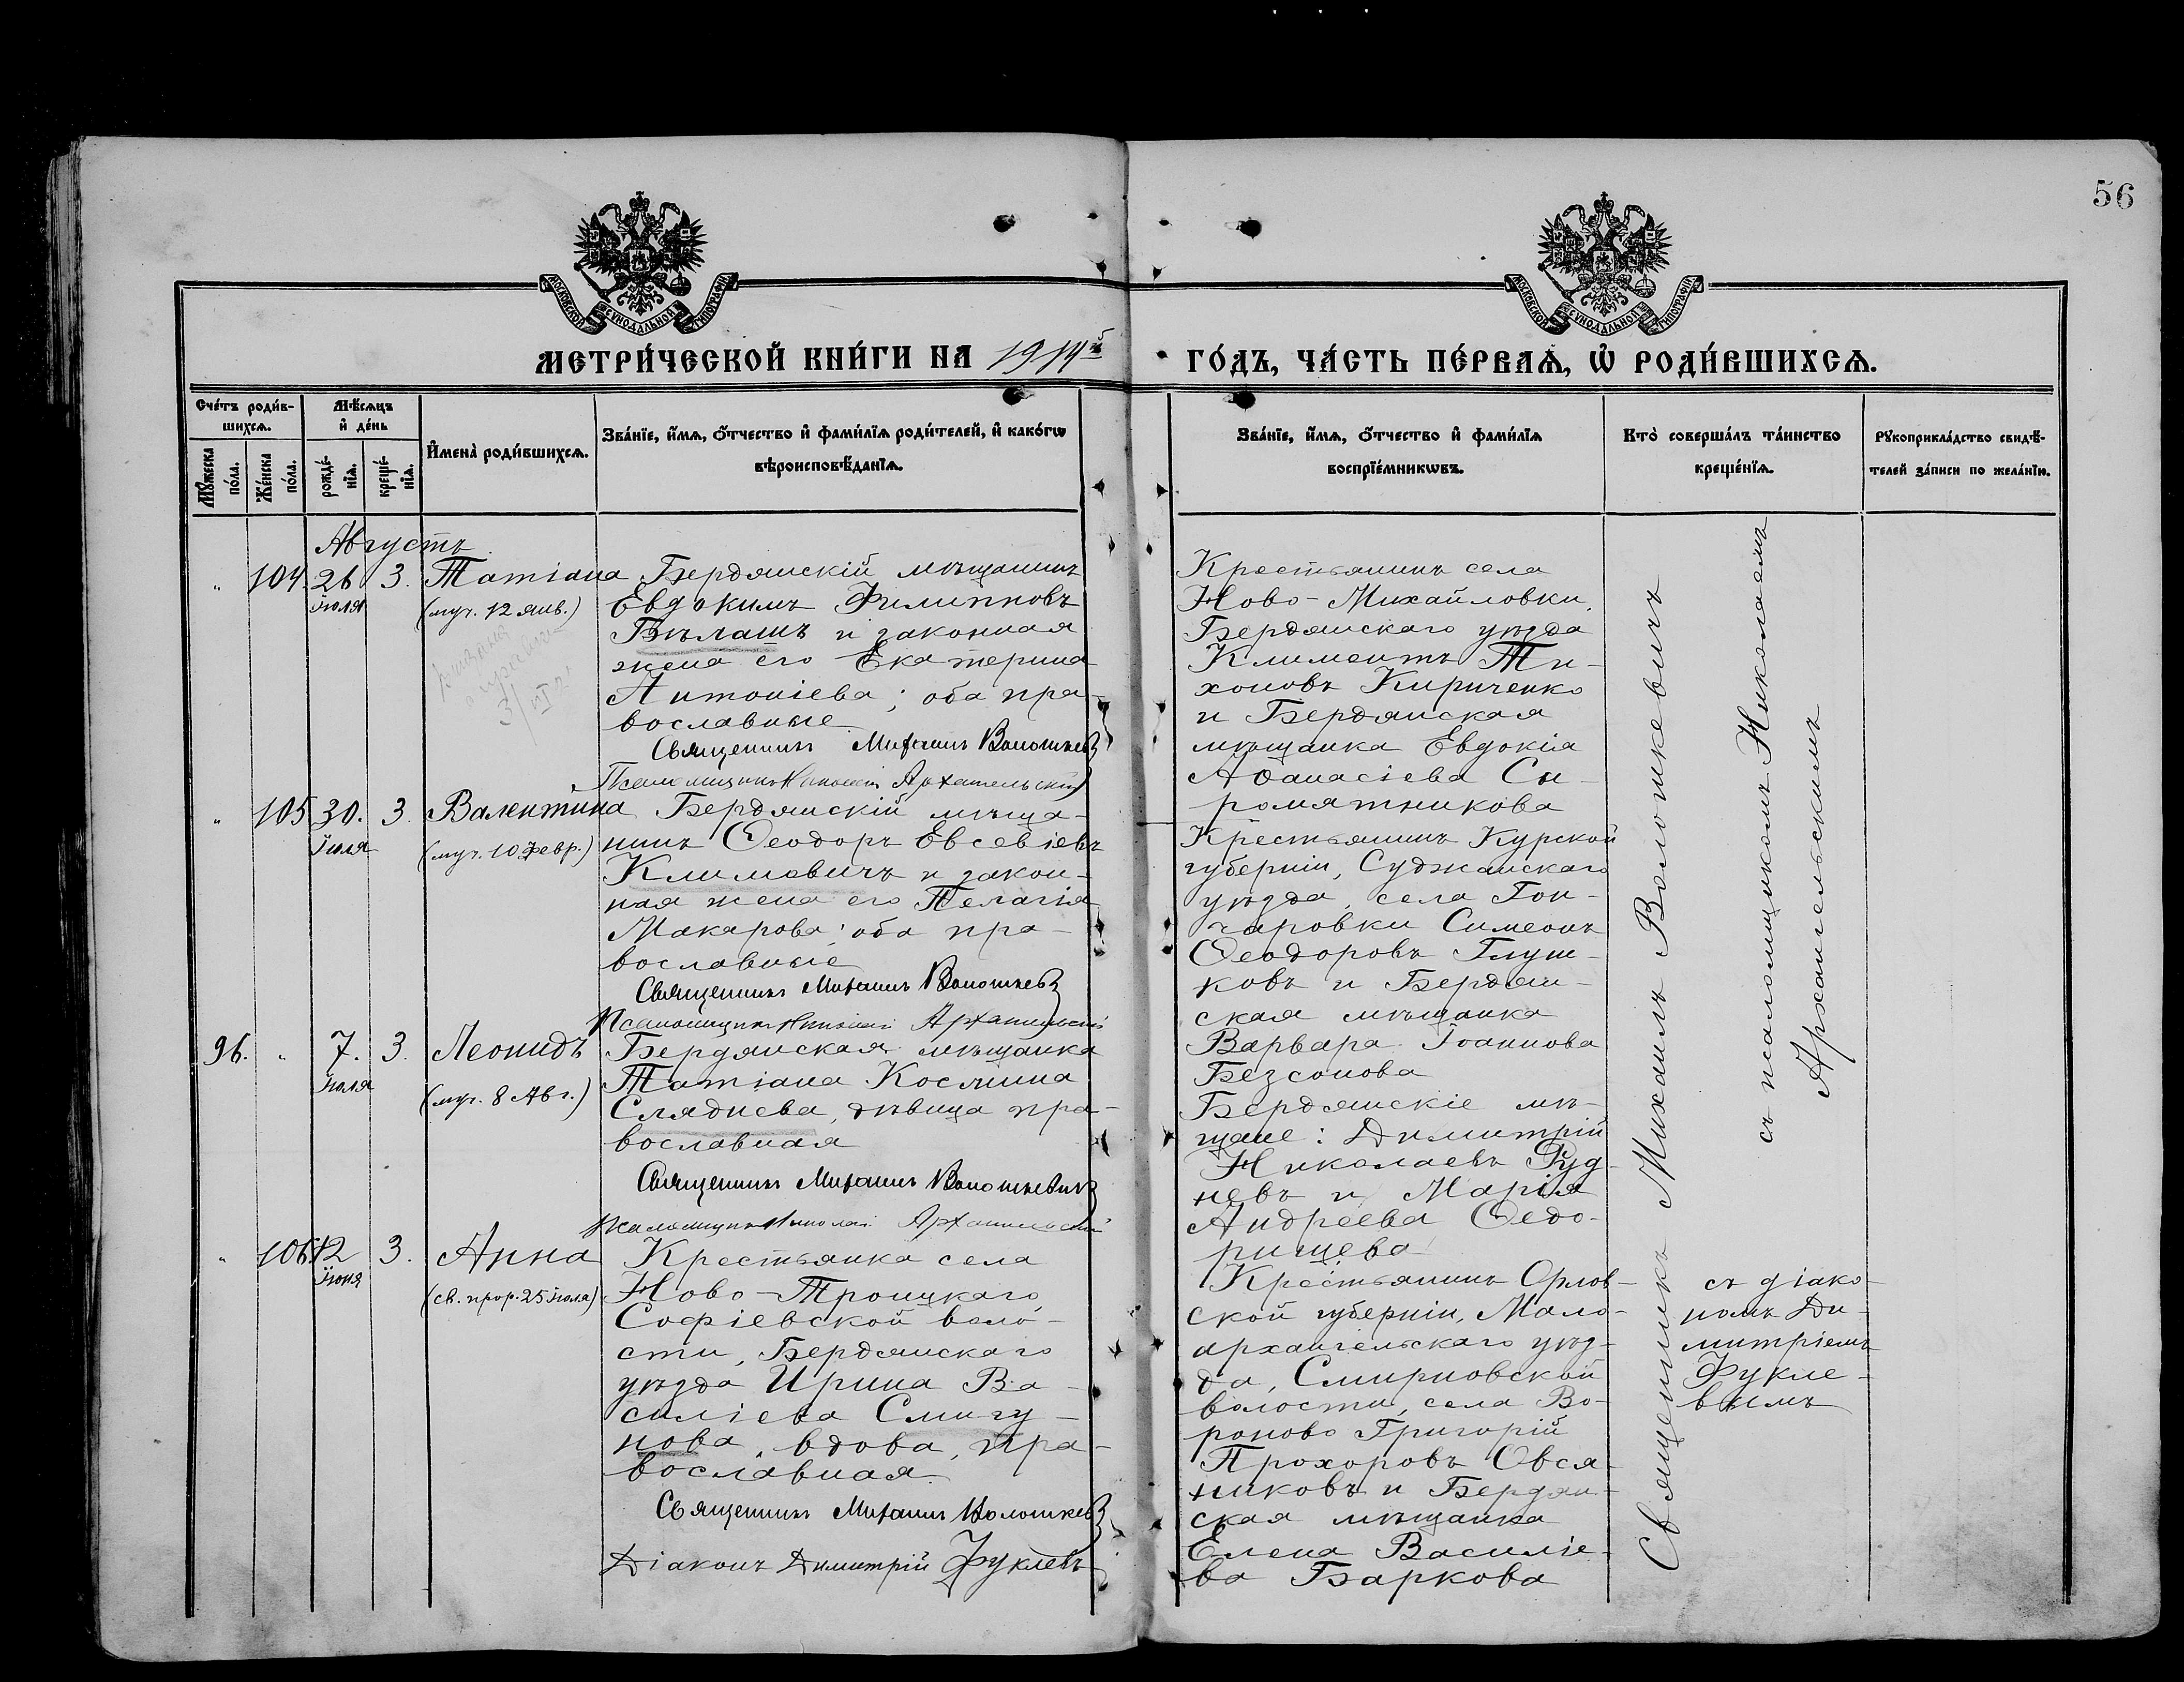 56
МОСКОВСКОЙ СѴНОДАЛЬНОЙ ТИПОГРАФІИ
МОСКОВСКОЙ СѴНОДАЛЬНОЙ ТИПОГРАФІИ
МЕТРИ́ЧЕСКОЙ КНИ́ГИ НА 1914й
ГО́ДЪ, ЧА́СТЬ ПЕ́РВАѦ, Ѡ РОДИ́ВШИХСѦ.
Сче́тъ роди́в-
шихсѧ.
Мꙋжеска по́ла.
Же́нска по́ла.
Мѣ́сѧцъ
и де́нь
рожде́-
нїѧ.
креще́-
нїѧ.
И҆мена̀ роди́вшихсѧ.
Зва́нїе, и҆́мѧ, ѻ҆́тчество и҆ фами́лїѧ роди́телей, и҆ како́гѡ
вѣроисповѣ́данїѧ.
Зва́нїе, и҆́мѧ, ѻ҆́тчество и҆ фами́лїѧ
воспрїе́мникѡвъ.
Кто̀ соверша́лъ та́инство
креще́нїѧ.
Рꙋкоприкла́дство свидѣ́-
телей за́писи по жела́нїю.
Августъ
" 104. 26 3. Татіана
Іюля (муч. 12 янв.)
Бердянскій мѣщанинъ
Евдокимъ Филипповъ
Бѣлашъ и законная
жена его Екатерина
Антоніева; оба пра-
вославные
Священникъ Михаилъ Волошкевичъ
Псаломщикъ Николай Архангельскій
Крестьянинъ села
Ново-Михайловки,
Бердянскаго уѣзда
Климентъ Ти-
хоновъ Кириченко
и Бердянская
мѣщанка Евдокія
Аѳанасіева Сы-
ромятникова
" 105 30. 3. Валентина
Іюля (муч. 10 февр.)
Бердянскій мѣща-
нинъ Ѳеодоръ Евсевіевъ
Климовичъ и закон-
ная жена его Пелагія
Макарова; оба пра-
вославные
Священникъ Михаилъ Волошкевичъ
Псаломщикъ Николай Архангельскій
Крестьянинъ Курской
губерніи, Суджанскаго
уѣзда, села Гон-
чаровки Симеонъ
Ѳеодоровъ Глуш-
ковъ и Бердян-
ская мѣщанка
Варвара Іоаннова
Безсонова
96. " 7. 3. Леонидъ
Іюля (муч. 8 Авг.)
Бердянская мѣщанка
Татіана Космина
Сляднева, дѣвица пра-
вославная
Священникъ Михаилъ Волошкевичъ
Псаломщикъ Николай Архангельскій
Бердянскіе мѣ-
щане: Димитрій
Николаевъ Руд-
невъ и Марія
Андреева Ѳедо-
рищева
" 106. 12 3. Анна
Іюня (св. прор. 25 Іюля)
Крестьянка села
Ново-Троицкаго,
Софіевской воло-
сти, Бердянскаго
уѣзда Ирина Ва-
силіева Смигу-
нова, вдова, пра-
вославная
Священникъ Михаилъ Волошкевичъ
Діаконъ Димитрій Фуклевъ
Крестьянинъ Орлов-
ской губерніи, Мало-
архангельскаго уѣз-
да, Смирновской
волости, села Во-
роново Григорій
Прохоровъ Овся-
никовъ и Бердян-
ская мѣщанка
Елена Василіе-
ва Баркова
Священникъ Михаилъ Волошкевичъ
съ псаломщикомъ Николаемъ
Архангельскимъ
съ діако-
номъ Ди-
митріемъ
Фукле-
вымъ